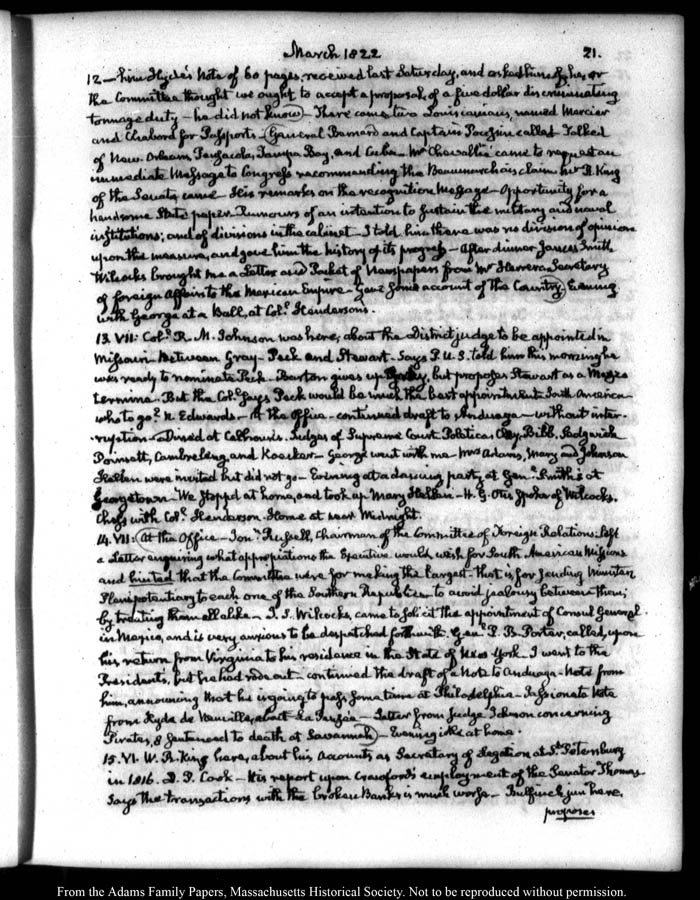 March 1822 21.
12 — him Hyde's Note of 60 pages, received last Saturday, and asked him if he, or
the Committee thought we ought to accept a proposal, of a five dollar discriminating
tonnage duty — he did not know — There came two Louisianians, named Mercier
and Chabord for Passports. General Bernard and Captain Poussin called. Talked
of New Orleans, Pensacola, Tampa Bay, and Cuba — Mr Chevallié came to request an
immediate Message to Congress recommending the Beaumarchais claim. Mr R. King
of the Senate came — His remarks on the recognition Message — Opportunity for a
handsome State paper. Rumours of an intention to sustain the military and naval
institutions; and of divisions in the cabinet — I told him there was no division of opinions
upon the measure, and gave him the history of its progress — After dinner James Smith
Wilcocks brought me a Letter and Packet of Newspapers from Mr Herrera, Secretary
of foreign Affairs to the Mexican Empire — Gave some account of the Country. Evening
with George at a Ball, at Col. Henderson's.
13. VII: Col. R. M. Johnson was here, about the District judge to be appointed in
Missouri — Between Gray — Peck and Stewart. Says P.U.S. told him this morning he
was ready to nominate Peck — Barton gives up, but proposes Stewart as a Mezzo
termine — But the Col. says Peck would be much the best appointment. South America
who to go? N. Edwards — At the Office — continued draft to Anduaga — without inter-
ruption — Dined at Calhoun's. Judges of Supreme Court. Politicas Clay, Bibb, Sedgwick
Poinsett, Cambreleng, and Kaecker — George went with me — Mrs Adams, Mary and Johnson
Hellen were invited but did not go — Evening at a dancing party, at Genl Smith's at
Georgetown. We stopp'd at home, and took up Mary Hellen — H. G. Otis spoke of Wilcocks.
Chess with Col. Henderson. Home at near Midnight.
14. VII: At the Office — Jon. Russell, Chairman of the Committee of Foreign Relations, left
a Letter enquiring what appropriations the Executive would wish for South American Missions
and hinted that the Committee were for making the largest — that is for sending Ministers
Plenipotentiary to each one of the Southern Republics — to avoid jealousy between them;
by treating them all alike — J. S. Wilcocks, came to solicit the appointment of Consul General
in Mexico, and is very anxious to be despatched forthwith. Genl P. B. Porter, called, upon
his return from Virginia to his residence in the State of New York — I went to the
Presidents, but he had rode out — continued the draft of a Note to Anduaga — Note from
him, announcing that he is going to pass some time at Philadelphia — Passionate Note
from Hyde de Neuville, about — Letter from Judge Johnson concerning
Pirates, 8 sentenced to death at Savannah — Evening idle at home.
15. VI. W. R. King here, about his Accounts as Secretary of Legation at St. Petersburg
in 1816. D. P. Cook — His report upon Crawford's employment of the Senator Thomas
Says the transactions with the broken Banks is much worse — Bulfinch junr here,
proposes
From the Adams Family Papers, Massachusetts Historical Society. Not to be reproduced without permission.